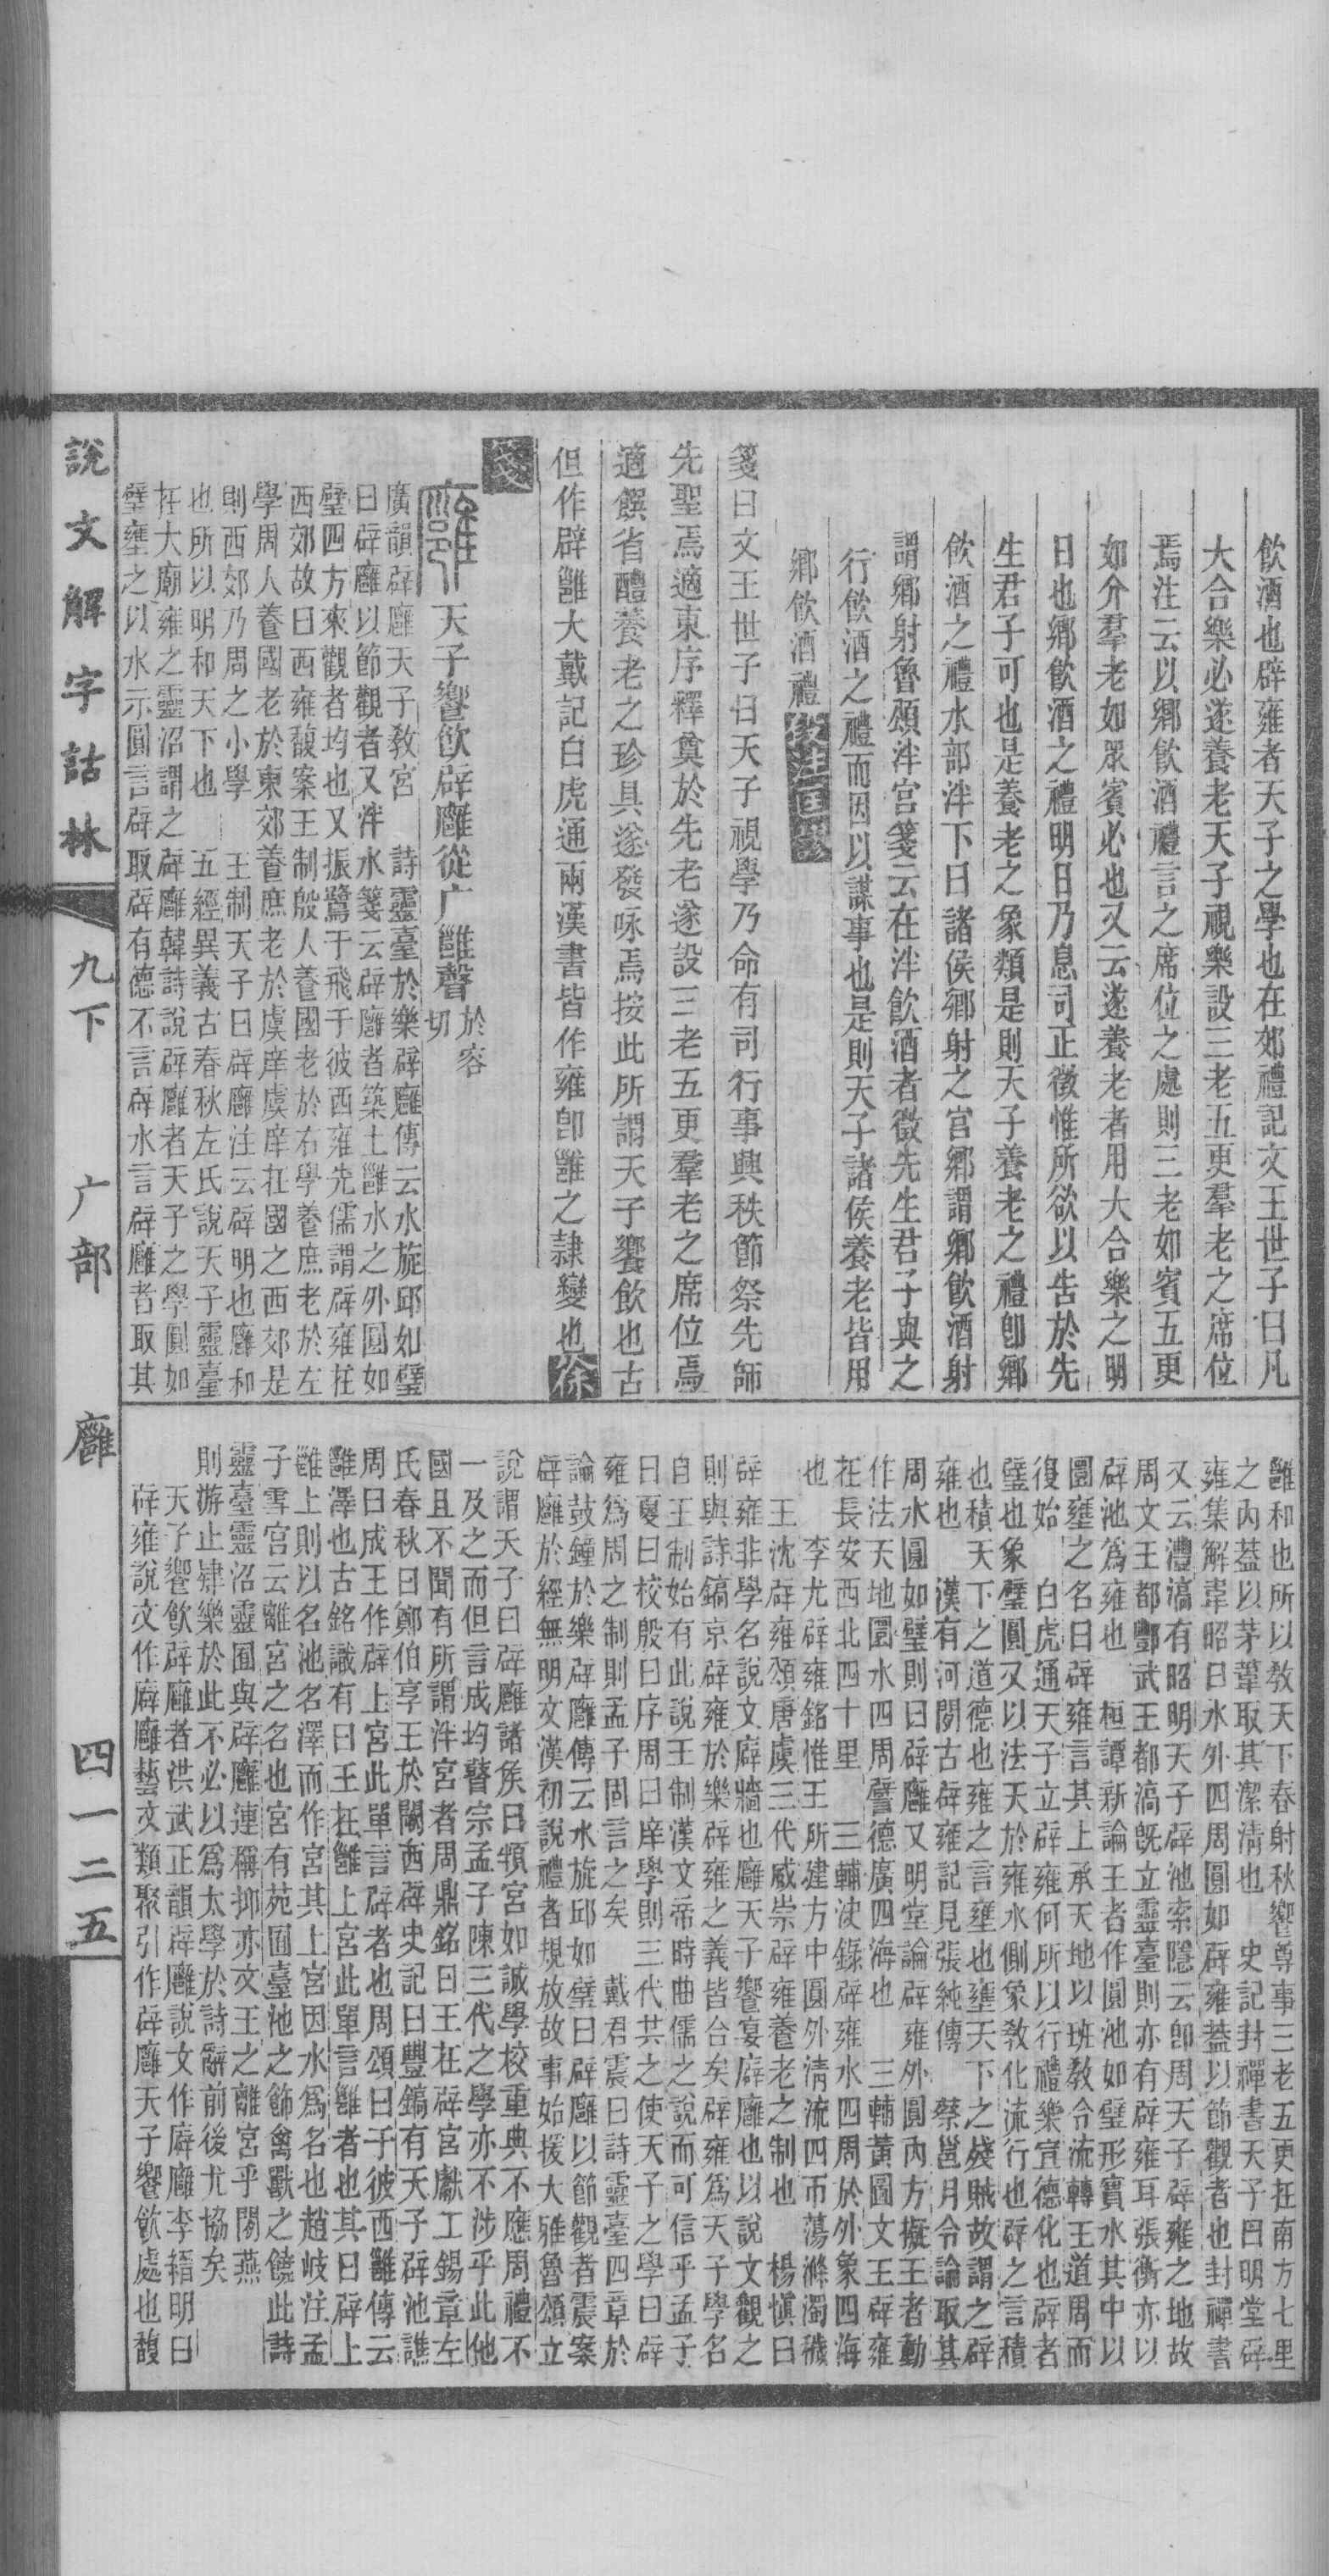 飲酒也辟雍者天子之學也在郊禮記文王世子曰凡
大合樂必遂養老天子視樂設三老五更羣老之席位
焉注云以鄉飲酒禮言之席位之處則三老如賓五更
如介羣老如眾賓必也又云遂養老者用大合樂之明
日也鄉飲酒之禮明日乃息司正徵惟所欲以告於先
生君子可也是養老之象類是則天子養老之禮卽鄉
飲酒之禮水部泮下曰諸侯鄉射之宮鄉謂鄉飲酒射
謂鄉射魯頌泮宮箋云在泮飲酒者徵先生君子與之
行飲酒之禮而因以謀事也是則天子諸侯養老皆用
鄉飲酒禮
箋曰文王世子曰天子視學乃命有司行事興秩節祭先師
先聖焉適東序釋奠於先老遂設三老五更羣老之席位焉
適饌省醴養老之珍具遂發咏焉按此所謂天子饗飲也古
但作辟雝大戴記白虎通兩漢書皆作雍卽雝之隷變也徐
箋
天子饗飲辟廱從广雝聲於容切
廣韻辟廱天子敎宮　詩靈臺於樂辟廱傳云水旋邱如璧
曰辟廱以節觀者又泮水箋云辟廱者築土雝水之外圓如
璧四方來觀者均也又振鷺于飛于彼西雍先儒謂辟雍在
西郊故曰西雍馥案王制殷人養國老於右學養庶老於左
學周人養國老於東郊養庶老於虞庠虞庠在國之西郊是
則西郊乃周之小學　王制天子曰辟廱注云辟明也廱和
也所以明和天下也　五經異義古春秋左氏說天子靈臺
在大廟雍之靈沼謂之辟廱韓詩說辟廱者天子之學圓如
璧壅之以水示圓言辟取辟有德不言辟水言辟廱者取其
雝和也所以敎天下春射秋饗尊事三老五更在南方七里
之內葢以茅葦取其潔清也　史記封禪書天子曰明堂辟
雍集解韋昭曰水外四周圓如辟雍葢以節觀者也封禪書
又云灃滈有昭明天子辟池索隱云卽周天子辟雍之地故
周文王都酆武王都滈旣立靈臺則亦有辟雍耳張衡亦以
辟池爲雍也　桓譚新論王者作圓池如璧形實水其中以
圜壅之名曰辟雍言其上承天地以班敎令流轉王道周而
復始　白虎通天子立辟雍何所以行禮樂宣德化也辟者
璧也象璧圓又以法天於雍水側象敎化流行也辟之言積
也積天下之道德也雍之言壅也壅天下之殘賊故謂之辟
雍也　漢有河閒古辟雍記見張純傳　蔡邕月令論取其
周水圓如璧則曰辟廱又明堂論辟雍外圓內方擬王者動
作法天地圜水四周譬德廣四海也　三輔黃圖文王辟雍
在長安西北四十里　三輔決錄辟雍水四周於外象四海
也　李尤辟雍銘惟王所建方中圓外清流四帀蕩滌濁穢
王沈辟雍頌唐虞三代咸崇辟雍養老之制也　楊愼曰
辟雍非學名說文廦牆也廱天子饗宴廦廱也以說文觀之
則與詩鎬京辟雍於樂辟雍之義皆合矣辟雍爲天子學名
自王制始有此說王制漢文帝時曲儒之說而可信乎孟子
曰夏曰校殷曰序周曰庠學則三代共之使天子之學曰辟
雍爲周之制則孟子固言之矣　戴君震曰詩靈臺四章於
論鼓鐘於樂辟廱傳云水旋邱如璧曰辟廱以節觀者震案
辟廱於經無明文漢初說禮者規放故事始援大雅魯頌立
說謂天子曰辟廱諸矦曰頖宮如誠學校重典不應周禮不
一及之而但言成均瞽宗孟子陳三代之學亦不涉乎此他
國且不聞有所謂泮宮者周鼎銘曰王在辟宮獻工錫章左
氏春秋曰鄭伯享王於闕西辟史記曰豐鎬有天子辟池譙
周曰成王作辟上宮此單言辟者也周頌曰于彼西雝傳云
雝澤也古銘識有曰王在雝上宮此單言雝者也其曰辟上
雝上則以名池名澤而作宮其上宮因水爲名也趙岐注孟
子雪宮云離宮之名也宮有苑囿臺池之飾禽獸之饒此詩
靈臺靈沼靈囿與辟廱連稱抑亦文王之離宮乎閒燕
則游止肄樂於此不必以爲太學於詩辭前後尤協矣
天子饗飲辟廱者洪武正韻辟廱說文作廦廱李㯺明曰
辟雍說文作廦廱藝文類聚引作辟廱天子饗飲處也馥
說文解字詁林　九下　广部　廱　四一二五